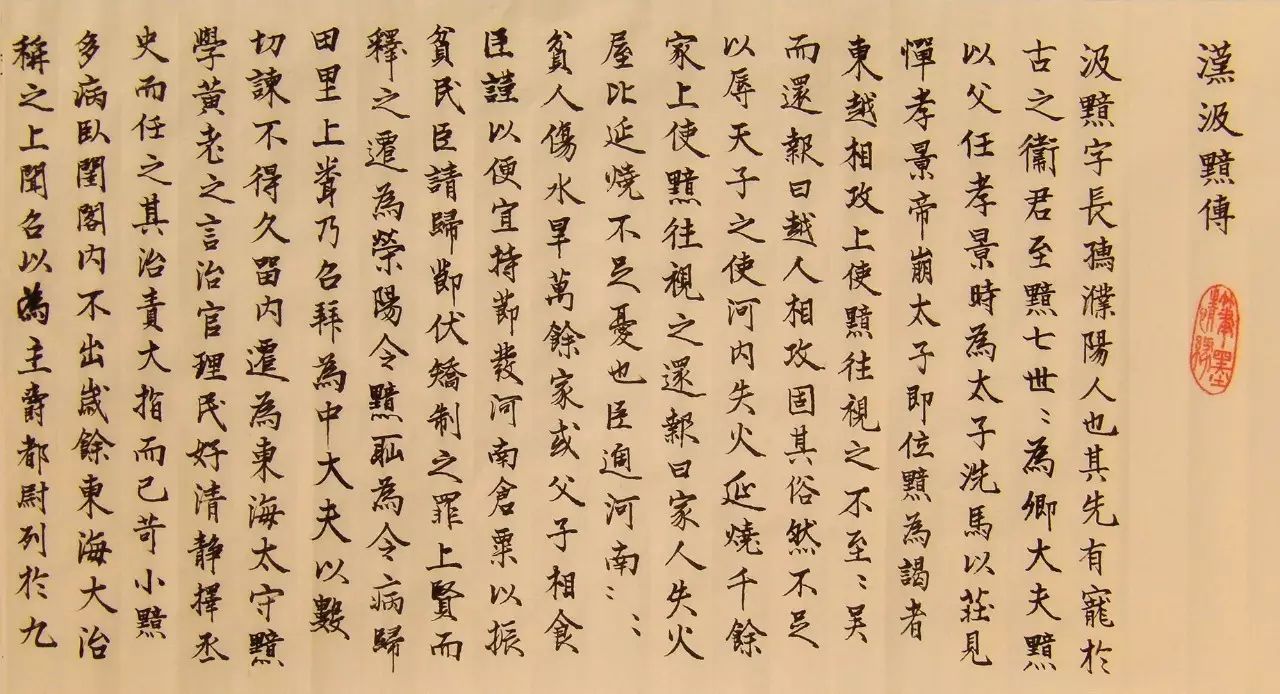 漢汲黯傳
汲黯字長孺濮陽人也其先有寵於
古之衞君至黯七世〻為卿大夫黯
以父任孝景時為太子洗馬以莊見
憚孝景帝崩太子即位黯為謁者
東越相攻上使黯往視之不至〻吴
而還報曰越人相攻固其俗然不足
以辱天子之使河内失火延燒千餘
家上使黯往視之還報曰家人失火
屋比延燒不足憂也臣過河南〻〻
貧人傷水旱萬餘家或父子相食
臣謹以便宜持節發河南倉粟以振
貧民臣請歸節伏矯制之罪上賢而
釋之遷為滎陽令黯耻為令病歸
田里上聞乃召拜為中大夫以數
切諫不得久留内遷為東海太守黯
學黃老之言治官理民好清靜擇丞
史而任之其治責大指而已苛小黯
多病臥閨閤内不出歲餘東海大治
稱之上聞召以為主爵都尉列於九